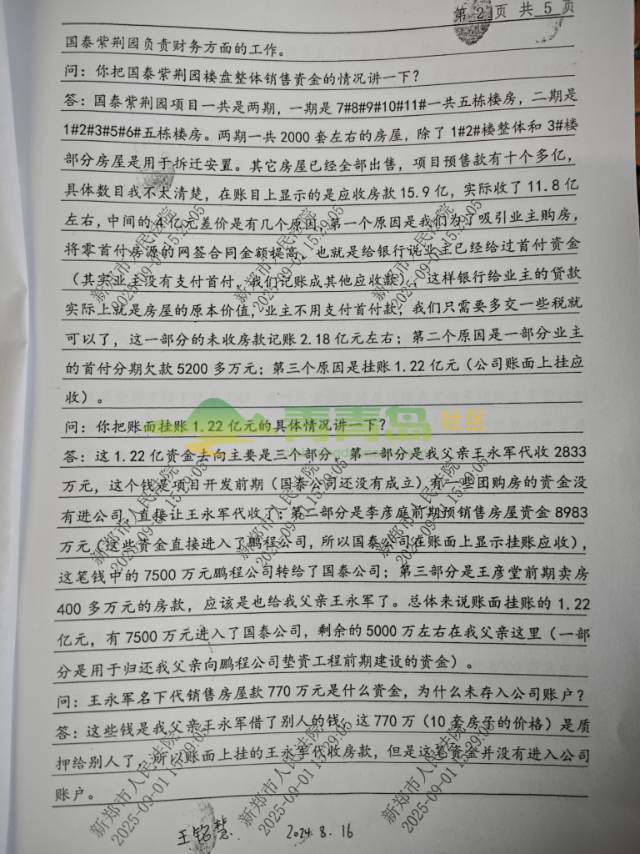 第 2 页 共 5 页
国泰紫荆园负责财务方面的工作。
问：你把国泰紫荆园楼盘整体销售资金的情况讲一下？
答：国泰紫荆园项目一共是两期，一期是 7#8#9#10#11#一共五栋楼房，二期是
1#2#3#5#6#五栋楼房。两期一共 2000 套左右的房屋，除了 1#2#楼整体和 3#楼
部分房屋是用于拆迁安置。其它房屋已经全部出售，项目预售款有十个多亿，
具体数目我不太清楚，在账目上显示的是应收房款 15.9 亿，实际收了 11.8 亿
左右，中间的 4 亿元差价是有几个原因，第一个原因是我们为了吸引业主购房，
将零首付房源的网签合同金额提高，也就是给银行说业主已经给过首付资金
（其实业主没有支付首付，我们记账成其他应收款），这样银行给业主的贷款
实际上就是房屋的原本价值，业主不用支付首付款，我们只需要多交一些税就
可以了，这一部分的未收房款记账 2.18 亿元左右；第二个原因是一部分业主
的首付分期欠款 5200 多万元；第三个原因是挂账 1.22 亿元（公司账面上挂应
收）。
问：你把账面挂账 1.22 亿元的具体情况讲一下？
答：这 1.22 亿资金去向主要是三个部分，第一部分是我父亲王永军代收 2833
万元，这个钱是项目开发前期（国泰公司还没有成立）有一些团购房的资金没
有进公司，直接让王永军代收了；第二部分是李彦庭前期预销售房屋资金 8983
万元（这些资金直接进入了鹏程公司，所以国泰公司在账面上显示挂账应收），
这笔钱中的 7500 万元鹏程公司转给了国泰公司；第三部分是王彦堂前期卖房
400 多万元的房款，应该是也给我父亲王永军了。总体来说账面挂账的 1.22
亿元，有 7500 万元进入了国泰公司，剩余的 5000 万左右在我父亲这里（一部
分是用于归还我父亲向鹏程公司垫资工程前期建设的资金）。
问：王永军名下代销售房屋款 770 万元是什么资金，为什么未存入公司账户？
答：这些钱是我父亲王永军借了别人的钱，这 770 万（10 套房子的价格）是质
押给别人了，所以账面上挂的王永军代收房款，但是这笔资金并没有进入公司
账户。
2024.8.16
青青岛 社区
新郑市人民法院
2025-09-01 15:29:05